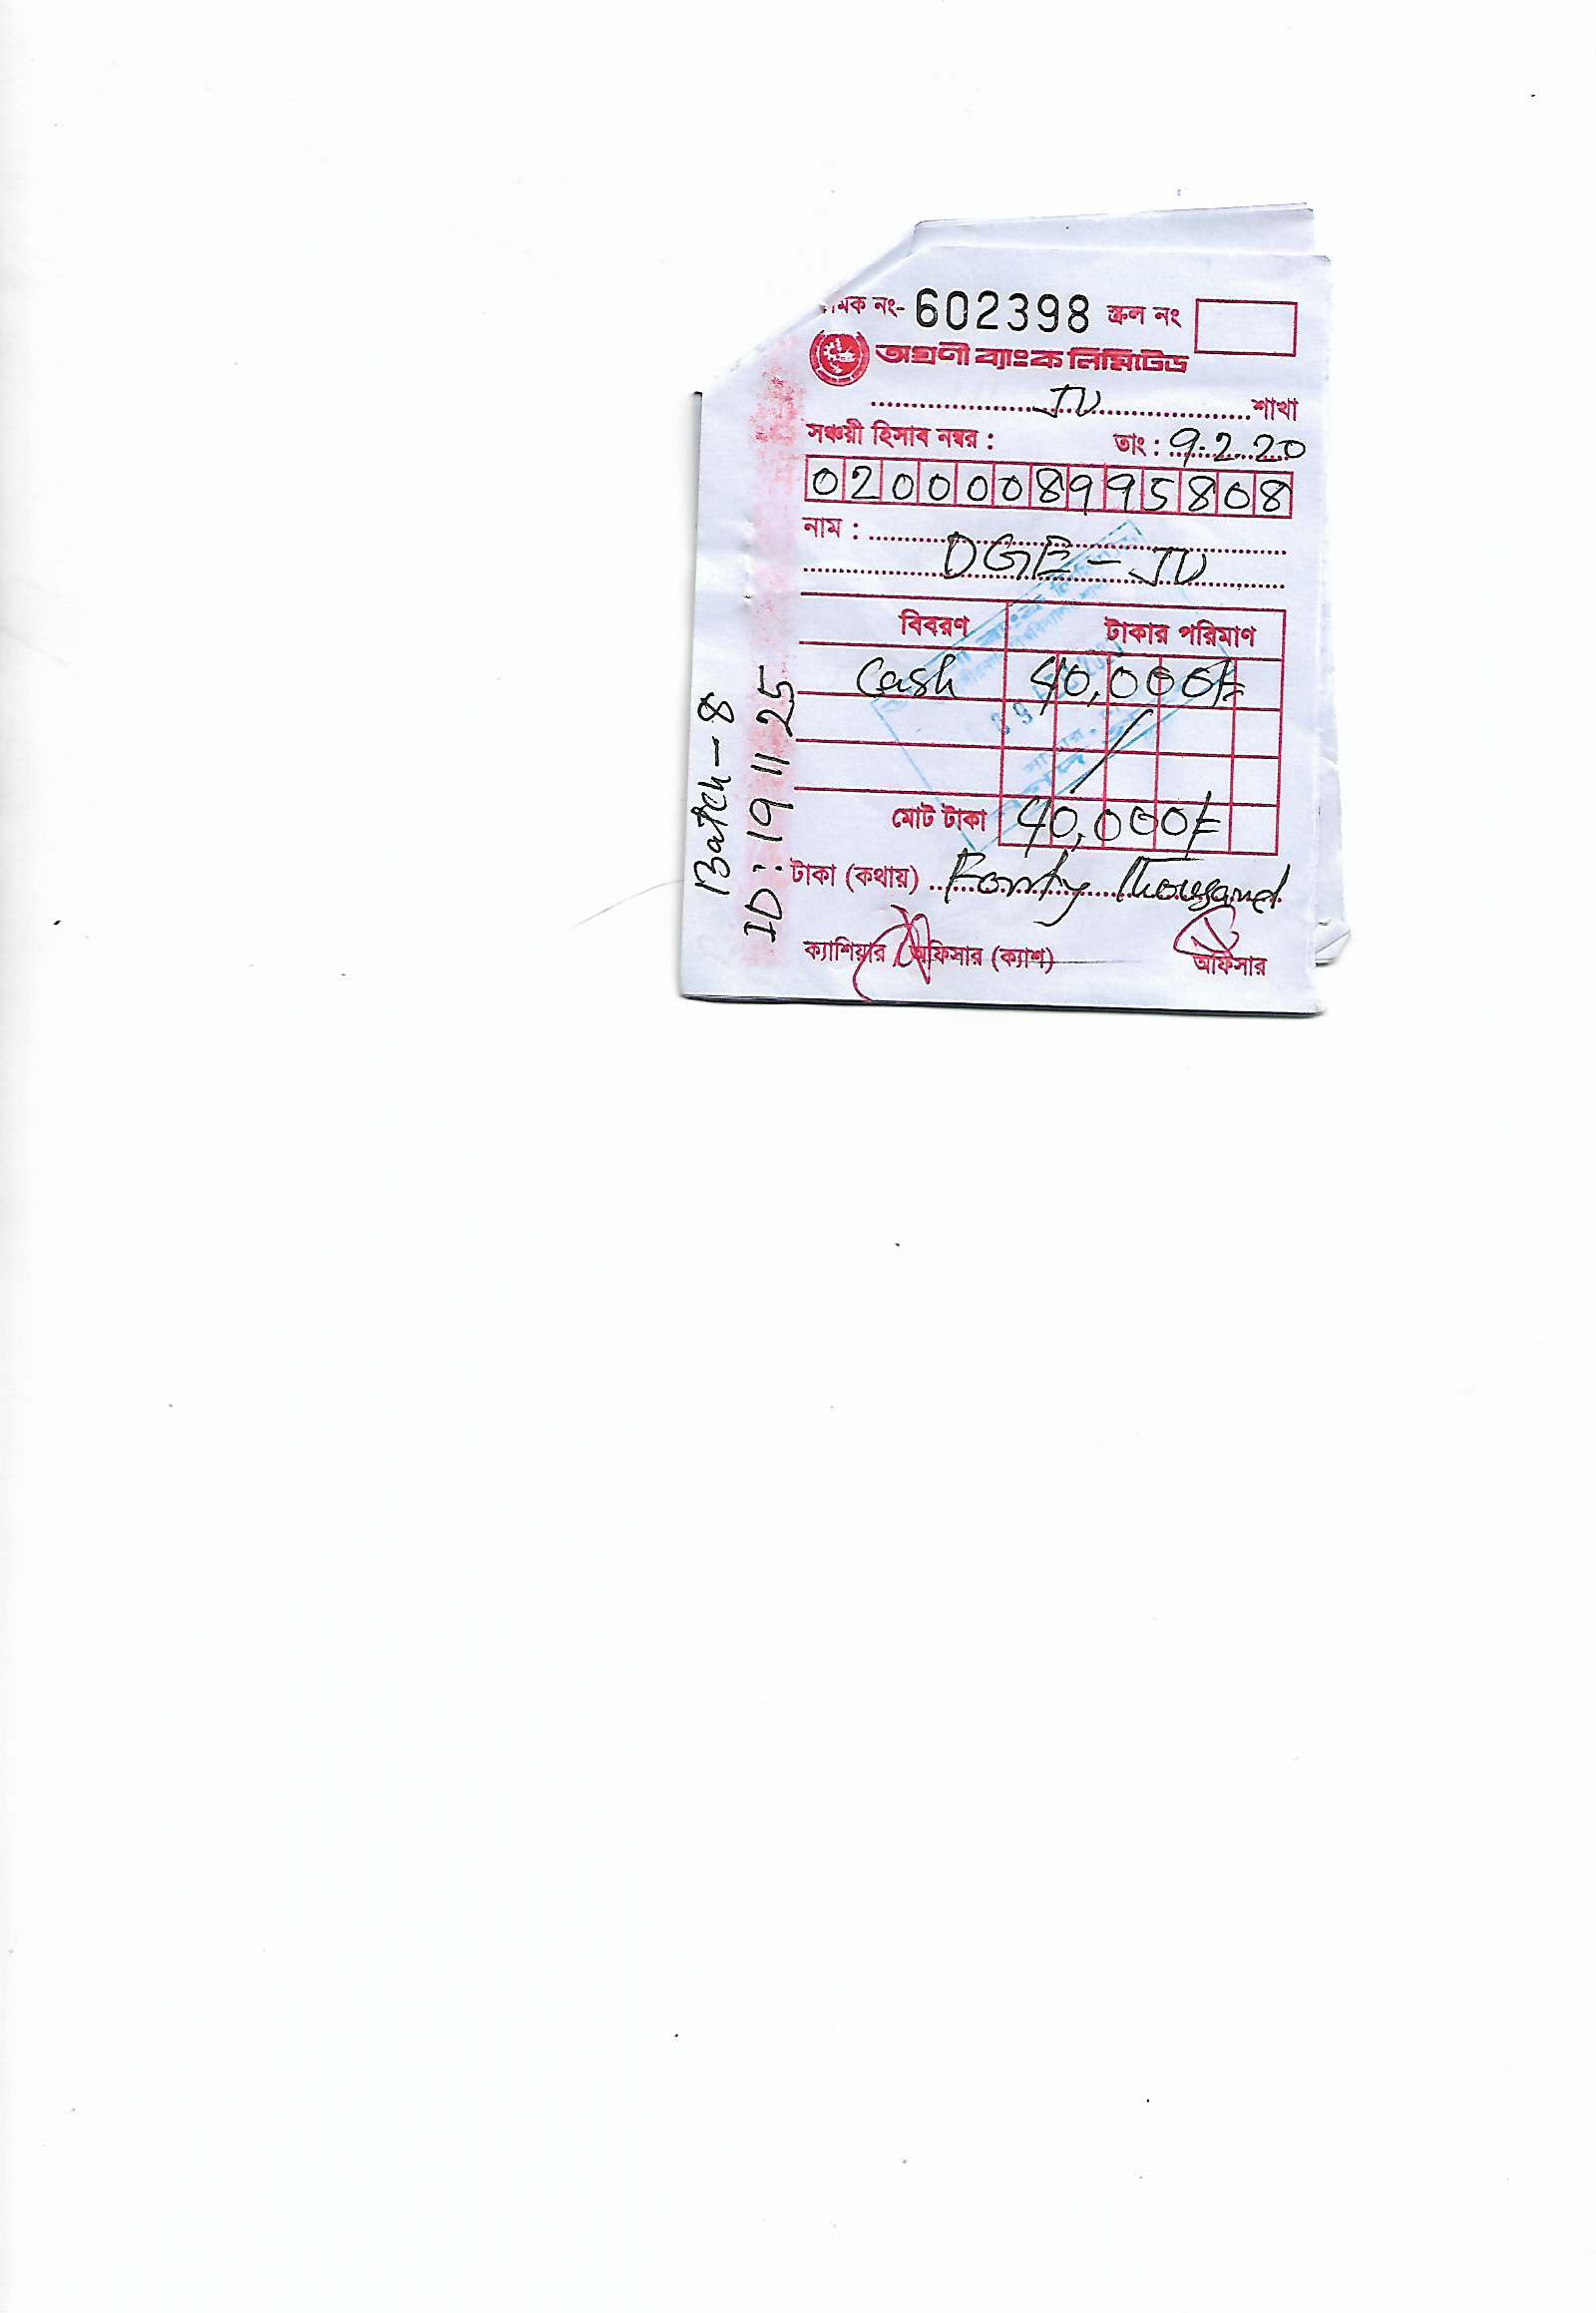 মিক নং- 602398 স্ক্রল নং
অগ্রণী ব্যাংক লিমিটেড
JU শাখা
সঞ্চয়ী হিসাব নম্বর : তাং : 9.2.20
0200008995808
নাম :
DGE-JU
বিবরণ টাকার পরিমাণ
Cash 40,000/=
মোট টাকা 40,000/=
টাকা (কথায়) Fourty Thousand
ক্যাশিয়ার অফিসার (ক্যাশ) অফিসার
Batch-8
ID: 19 11 25